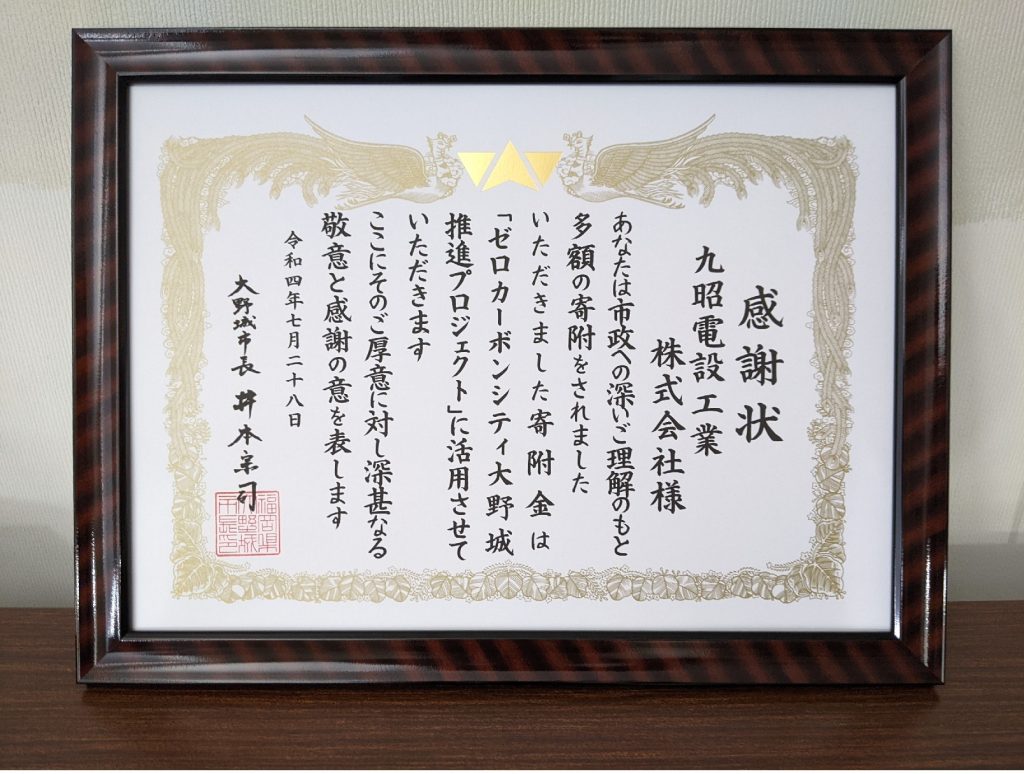 感謝状
九昭電設工業
株式会社様
あなたは市政への深いご理解のもと
多額の寄附をされました
いただきました寄附金は
「ゼロカーボンシティ大野城
推進プロジェクト」に活用させて
いただきます
ここにそのご厚意に対し深甚なる
敬意と感謝の意を表します
令和四年七月二十八日
大野城市長 井本宗司
福岡県
大野城
市長印